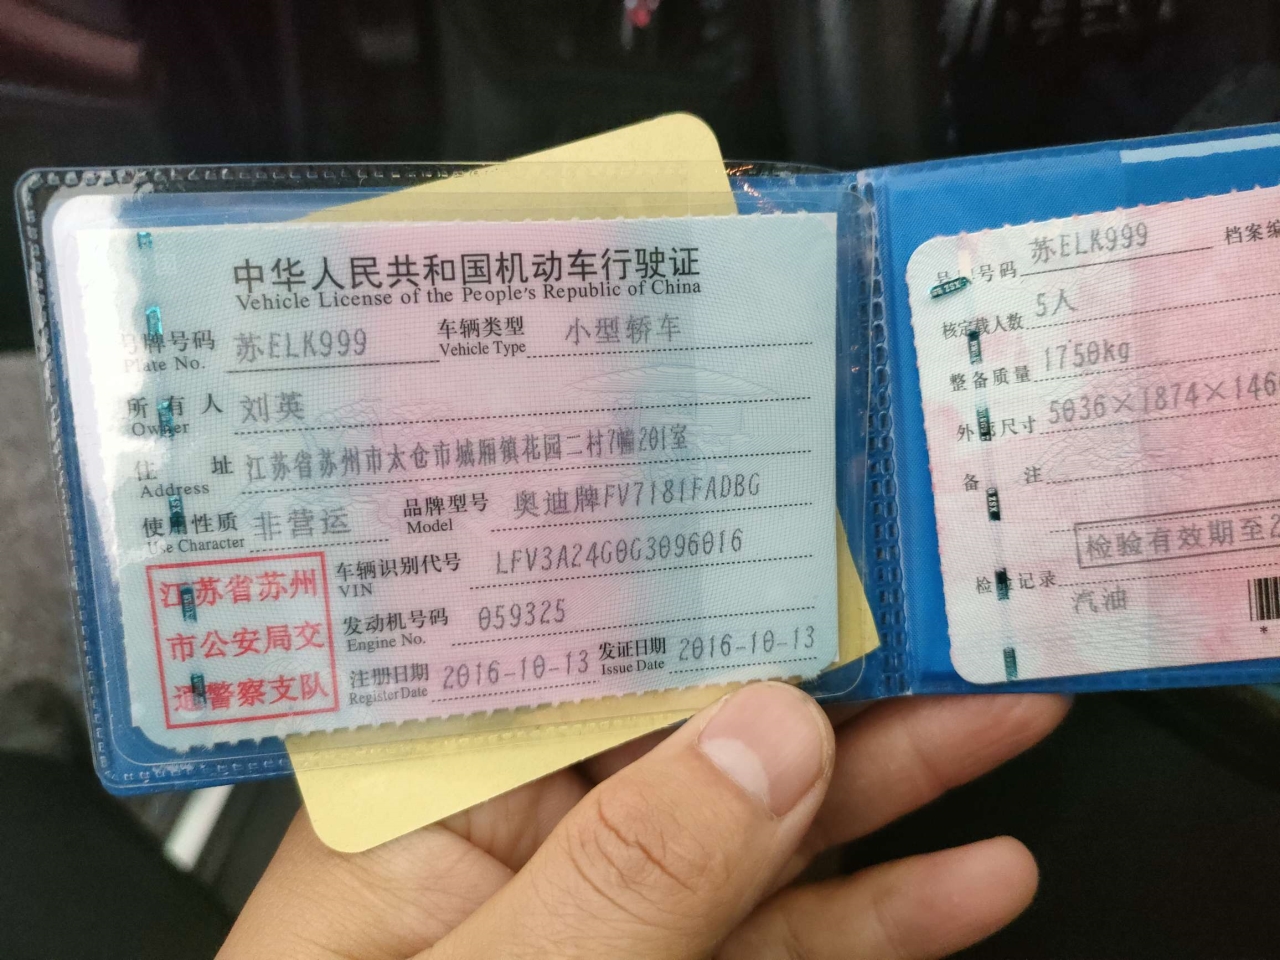 中华人民共和国机动车行驶证
Vehicle License of the People's Republic of China
号牌号码 苏ELK999 车辆类型 小型轿车
Plate No. Vehicle Type
所有人 刘英
Owner
住址 江苏省苏州市太仓市城厢镇花园二村7幢201室
Address
使用性质 非营运 品牌型号 奥迪牌FV7181FADBG
Use Character Model
车辆识别代号 LFV3A24G0G3096016
VIN
发动机号码 059325
Engine No.
注册日期 2016-10-13 发证日期 2016-10-13
Register Date Issue Date
江苏省苏州
市公安局交
通警察支队
号牌号码 苏ELK999 档案编
核定载人数 5人
整备质量 1750kg
外廓尺寸 5036×1874×146
备注
检验有效期至2
检验记录
汽油
*